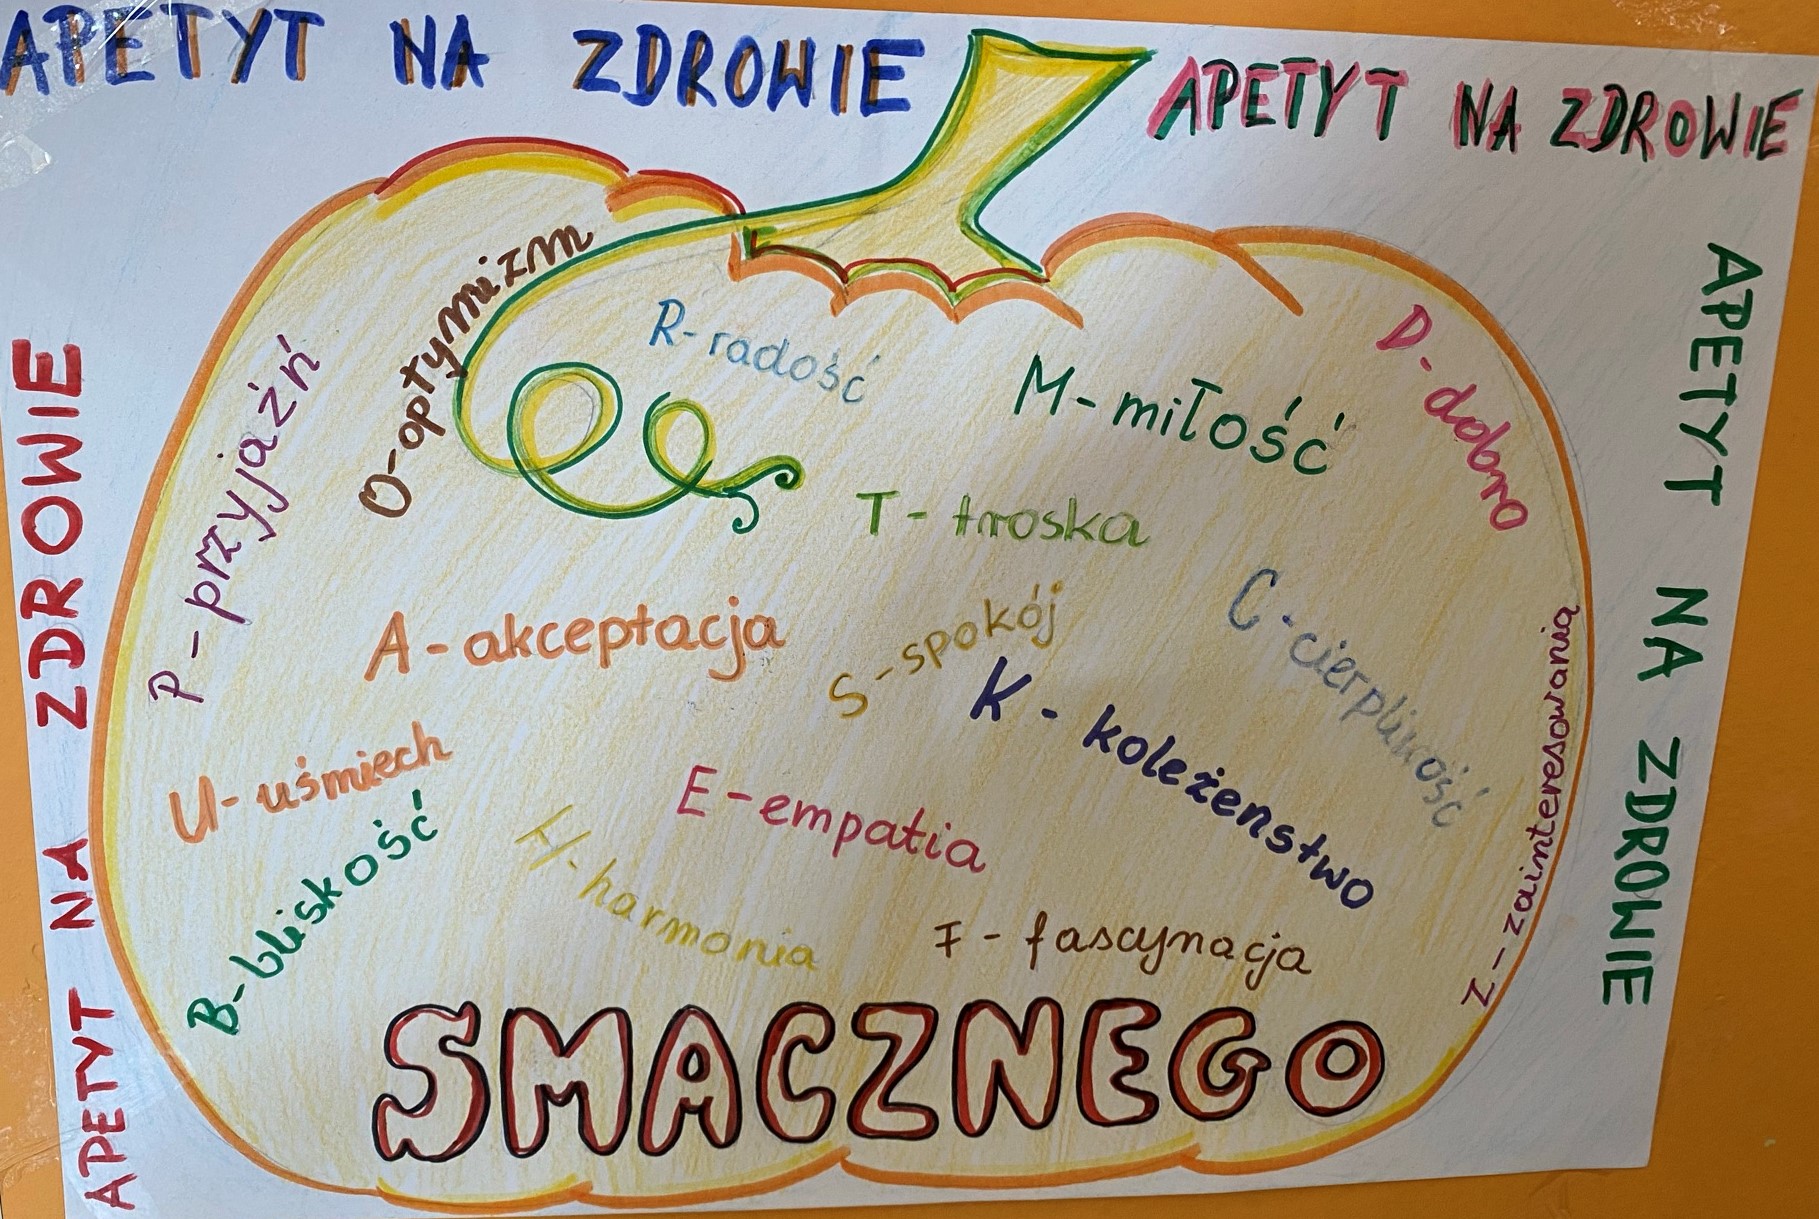 APETYT NA ZDROWIE
APETYT NA ZDROWIE
APETYT NA ZDROWIE
APETYT NA ZDROWIE
P-przyjaźń
O-optymizm
R-radość
M-miłość
D-dobro
T-troska
A-akceptacja
S-spokój
C-cierpliwość
K-koleżenstwo
Z-zainteresowania
U-uśmiech
E-empatia
B-bliskość
H-harmonia
F-fascynacja
SMACZNEGO